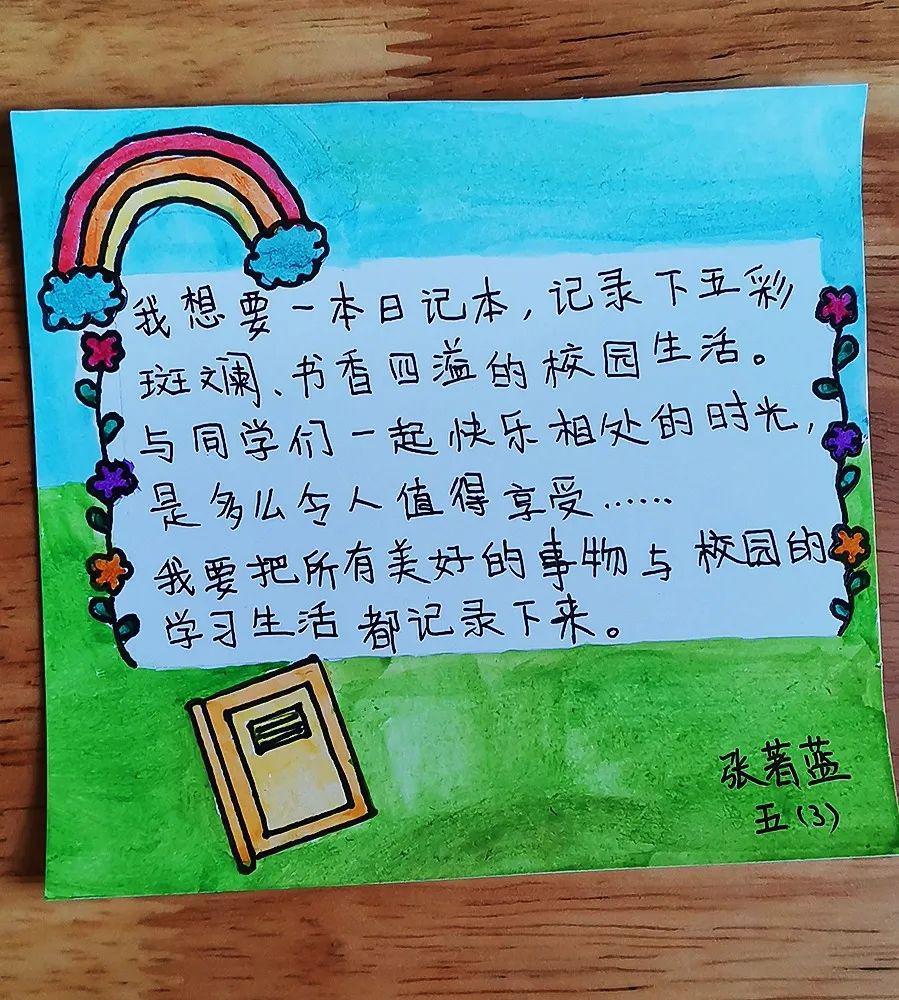 我想要一本日记本,记录下五彩
斑斓、书香四溢的校园生活。
与同学们一起快乐相处的时光,
是多么令人值得享受……
我要把所有美好的事物与校园的
学习生活都记录下来。
张著蓝
五(3)